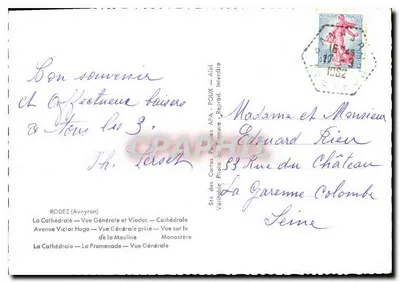 Bon souvenir
et affectueux baisers
à tous les 3.
Th. Lerset
RODEZ (Aveyron)
La Cathédrale — Vue Générale et Viaduc — Cathédrale
Avenue Victor Hugo — Vue Générale prise — Vue sur le
de la Mouline Monastère
La Cathédrale — La Promenade — Vue Générale
Sté des Cartes Postales APA - POUX - Albi
Véritable Photo Reprod. Interdite
16
1962
Madame et Monsieur
Edouard Rieu
53 Rue du Château
La Garenne Colombe
Seine
CPARPHIL